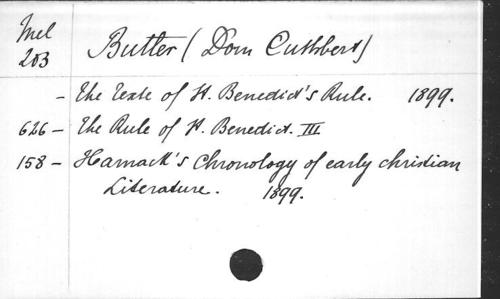 Mel
203
Butler (Dom Cuthbert)
- The Texte of St. Benedict's Rule. 1899.
626 - The Rule of St. Benedict. III
158 - Harnack's Chronology of early christian
Literature. 1899.